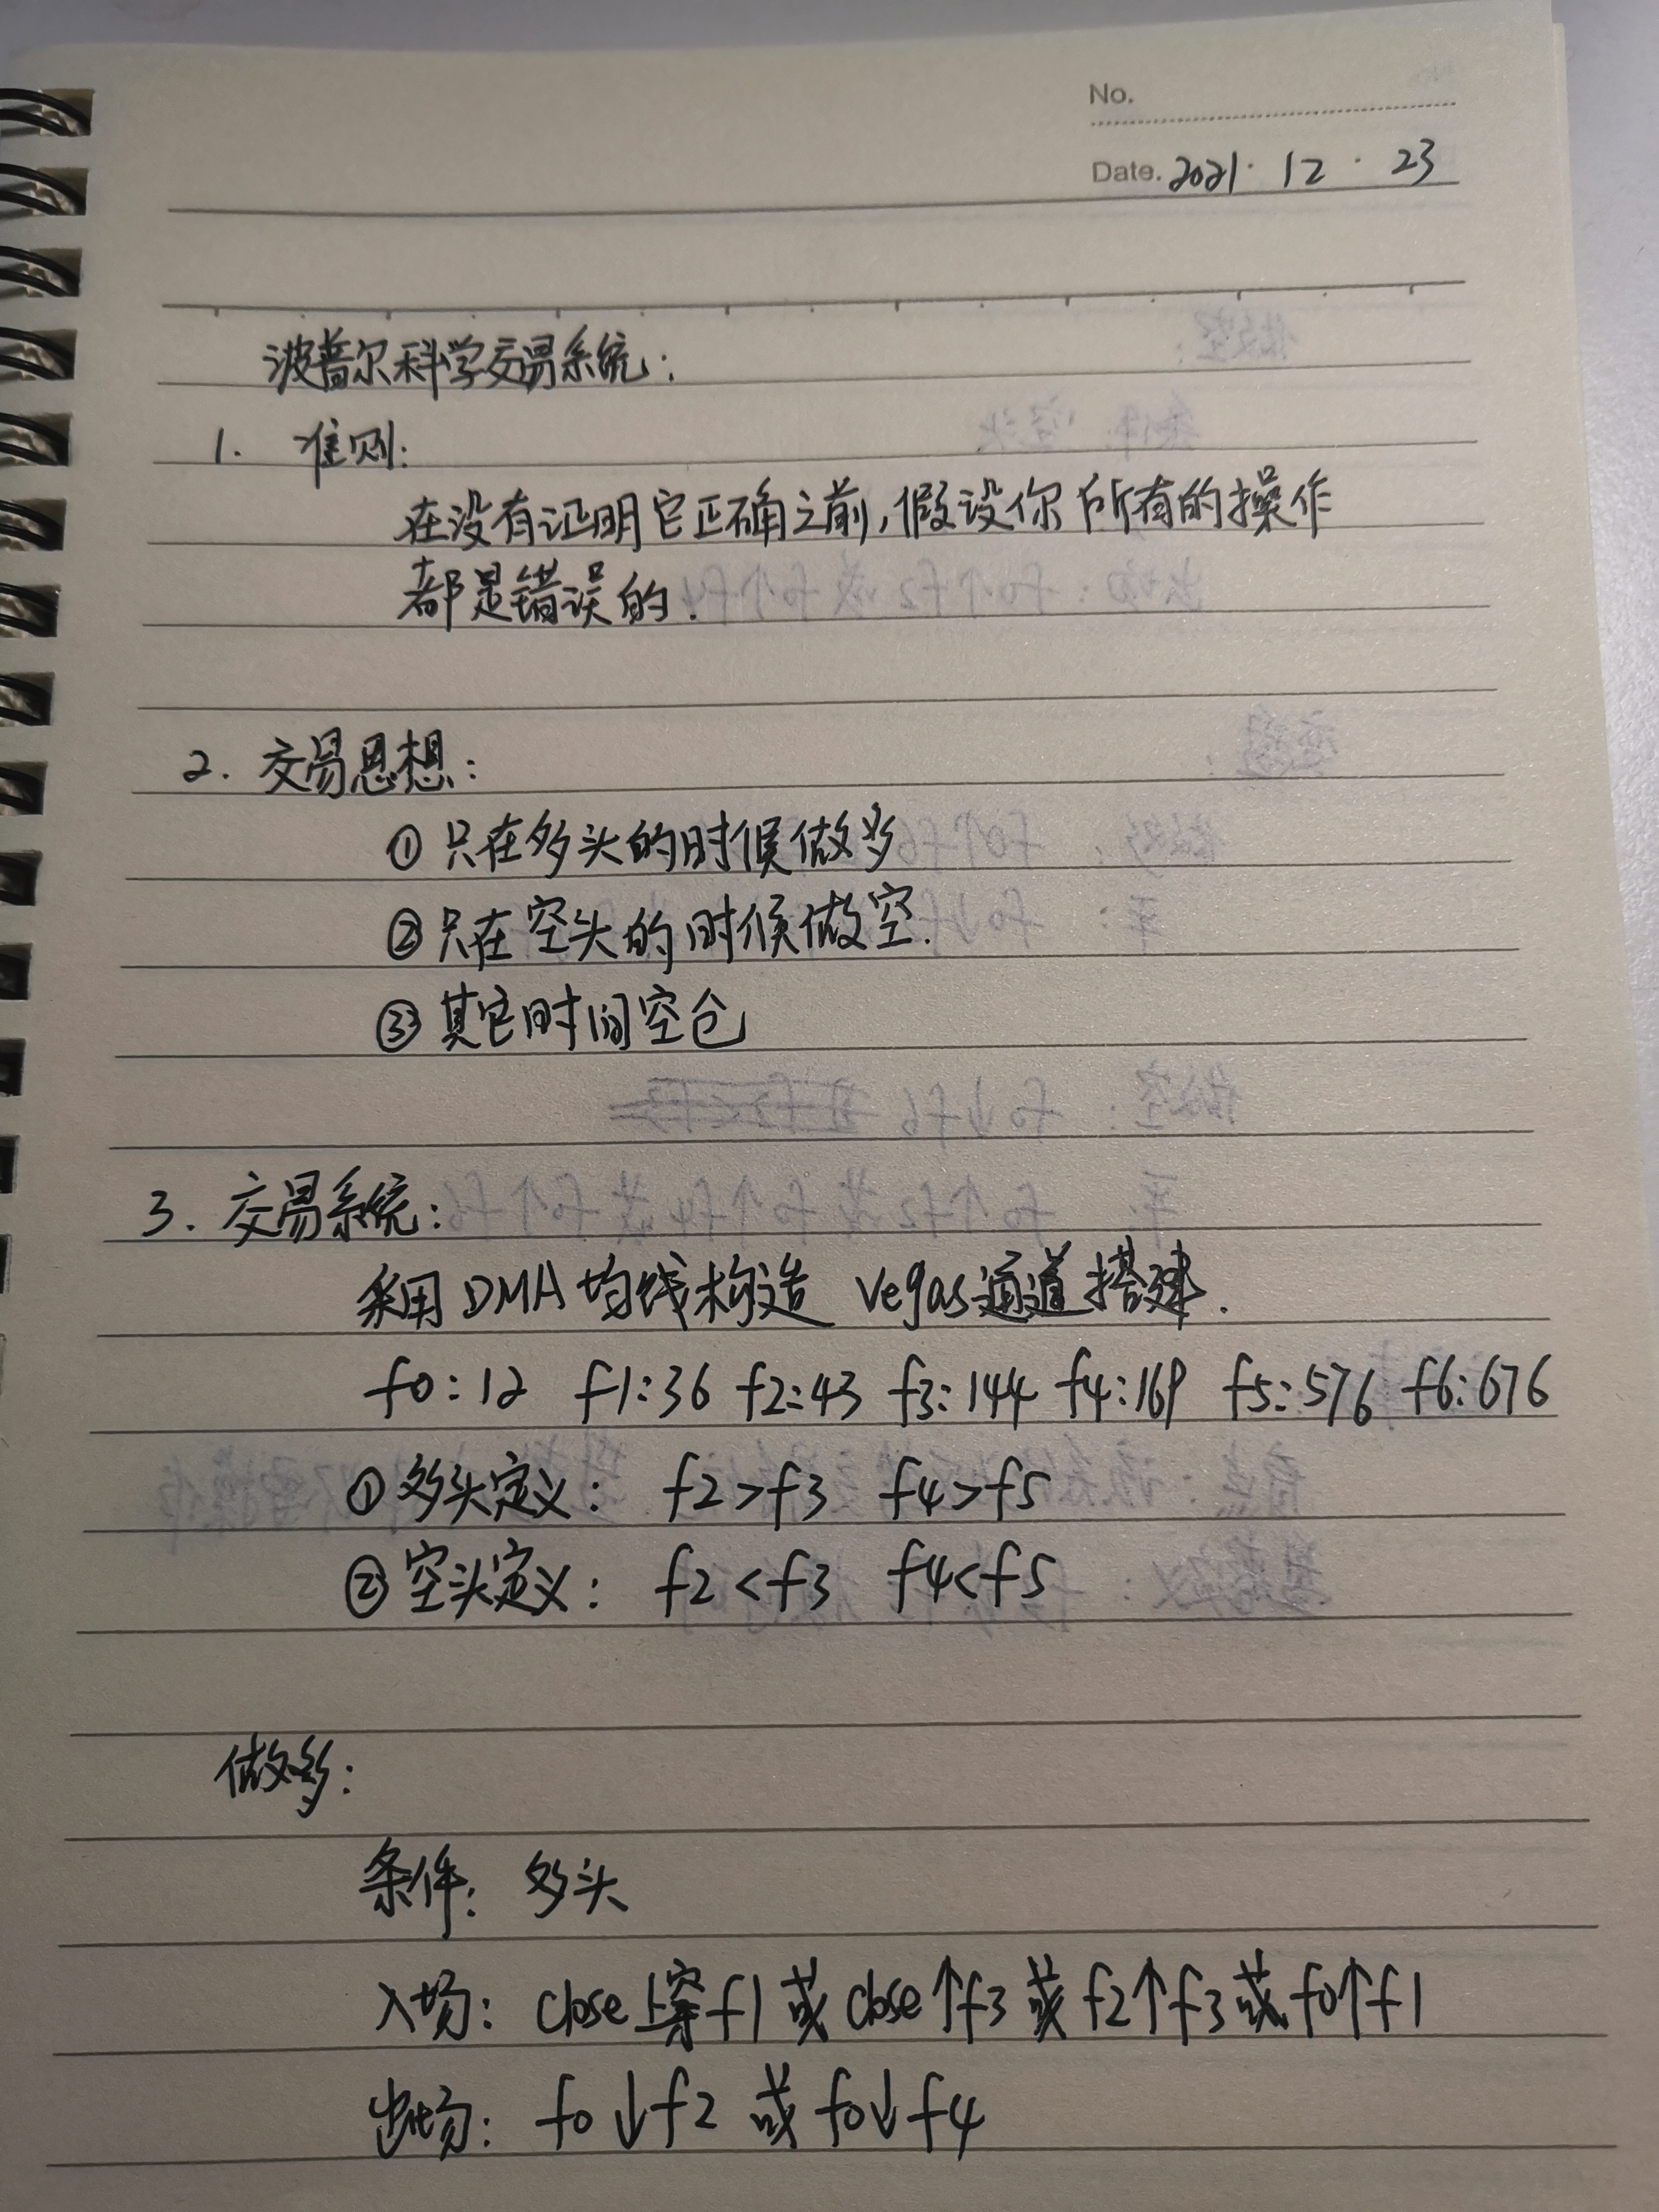 No.
Date. 2021. 12. 23
波普尔科学交易系统:
1. 准则:
在没有证明它正确之前,假设你所有的操作
都是错误的.
2. 交易思想:
① 只在多头的时候做多
② 只在空头的时候做空.
③ 其它时间空仓
3. 交易系统:
采用DMA均线构造 vegas通道搭建.
f0:12 f1:36 f2:43 f3:144 f4:169 f5:576 f6:676
① 多头定义: f2>f3 f4>f5
② 空头定义: f2<f3 f4<f5
做多:
条件: 多头
入场: close上穿f1 或 close↑f3 或 f2↑f3 或 f0↑f1
出场: f0↓f2 或 f0↓f4